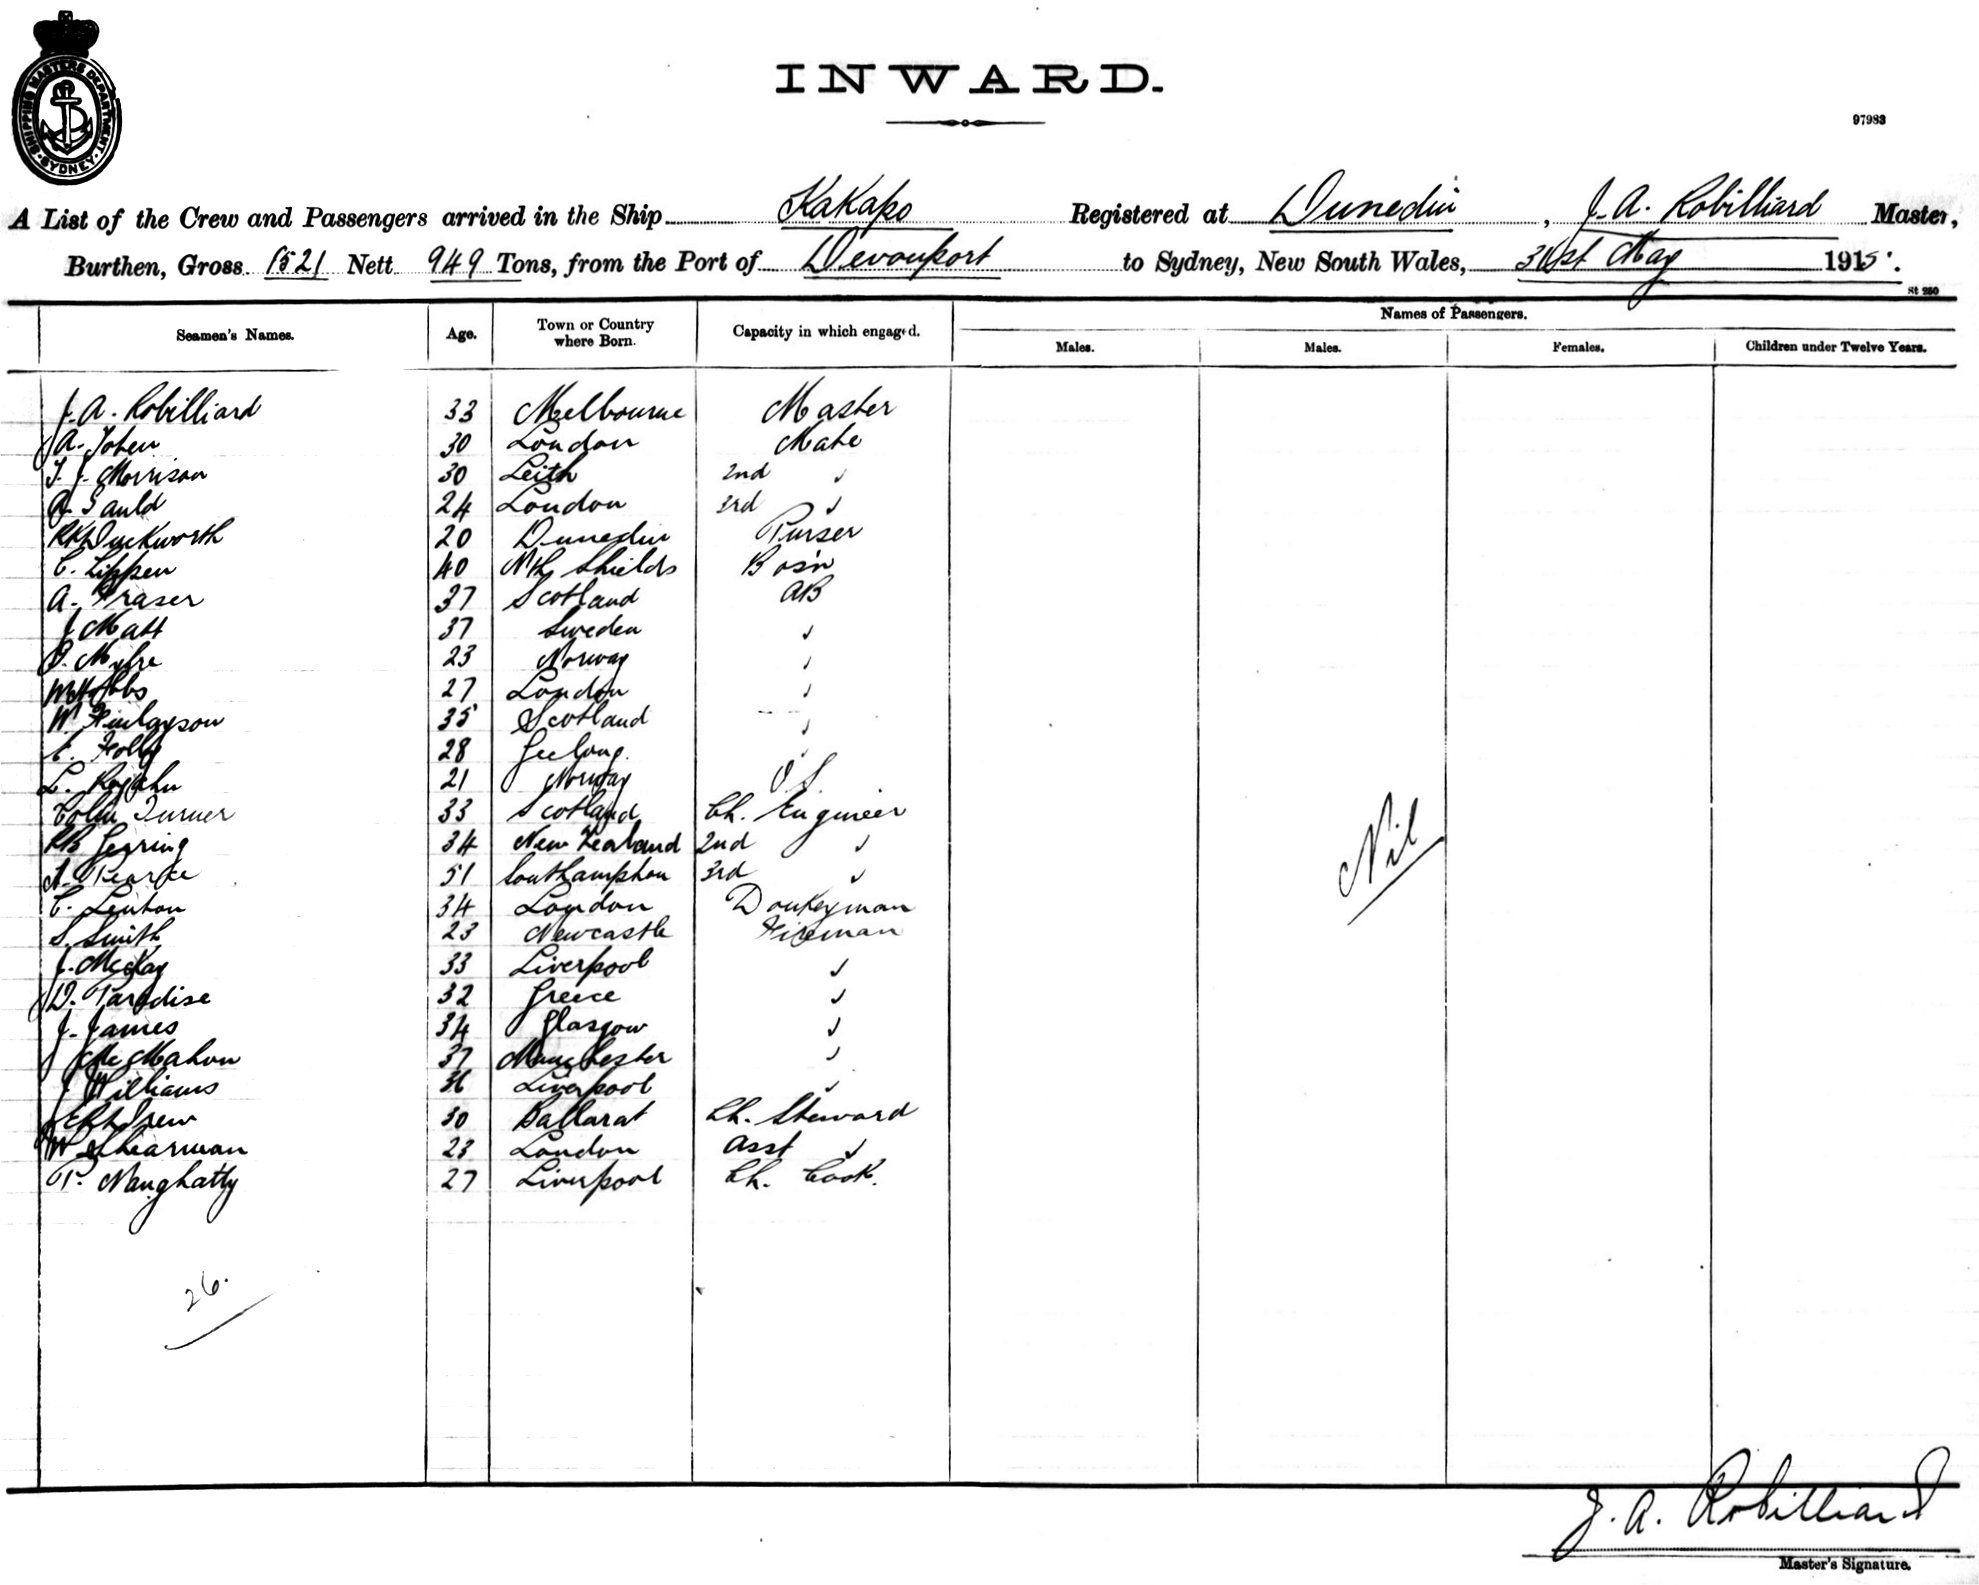 SHIPPING MASTERS DEPARTMENT · SYDNEY ·
INWARD.
97983
A List of the Crew and Passengers arrived in the Ship Kakapo Registered at Dunedin, J. A. Robilliard Master,
Burthen, Gross 1521 Nett 949 Tons, from the Port of Devonport to Sydney, New South Wales, 31st May 1915.
St 250
Seamen's Names. Age. Town or Country where Born. Capacity in which engaged. Names of Passengers.
Males. Males. Females. Children under Twelve Years.
J. A. Robilliard 33 Melbourne Master
A. 30 London Mate
T. J. Morrison 30 Leith 2nd ✓
A. Gauld 24 London 3rd ✓
RK Duckworth 20 Dunedin Purser
C. Lippen 40 Nth Shields Bosn
A. Fraser 37 Scotland AB
J Matt 37 Sweden ✓
23 Norway ✓
W Hobbs 27 London ✓
W Finlayson 35 Scotland ✓
28 Geelong ✓
L. 21 Norway O S
Colin Turner 33 Scotland Ch. Engineer
34 New Zealand 2nd ✓
A. Pearce 51 Southampton 3rd ✓
C. Lenton 34 London Donkeyman
S. Smith 23 Newcastle Fireman
J. McKay 33 Liverpool ✓
D. Paradise 32 Greece ✓
J. James 34 Glasgow ✓
J McMahon 37 Manchester ✓
J Williams 36 Liverpool ✓
Drew 30 Ballarat Ch. Steward
W Shearman 23 London Asst ✓
P. Naughatty 27 Liverpool Ch. Cook.
Nil
26.
J. A. Robilliard
Master's Signature.